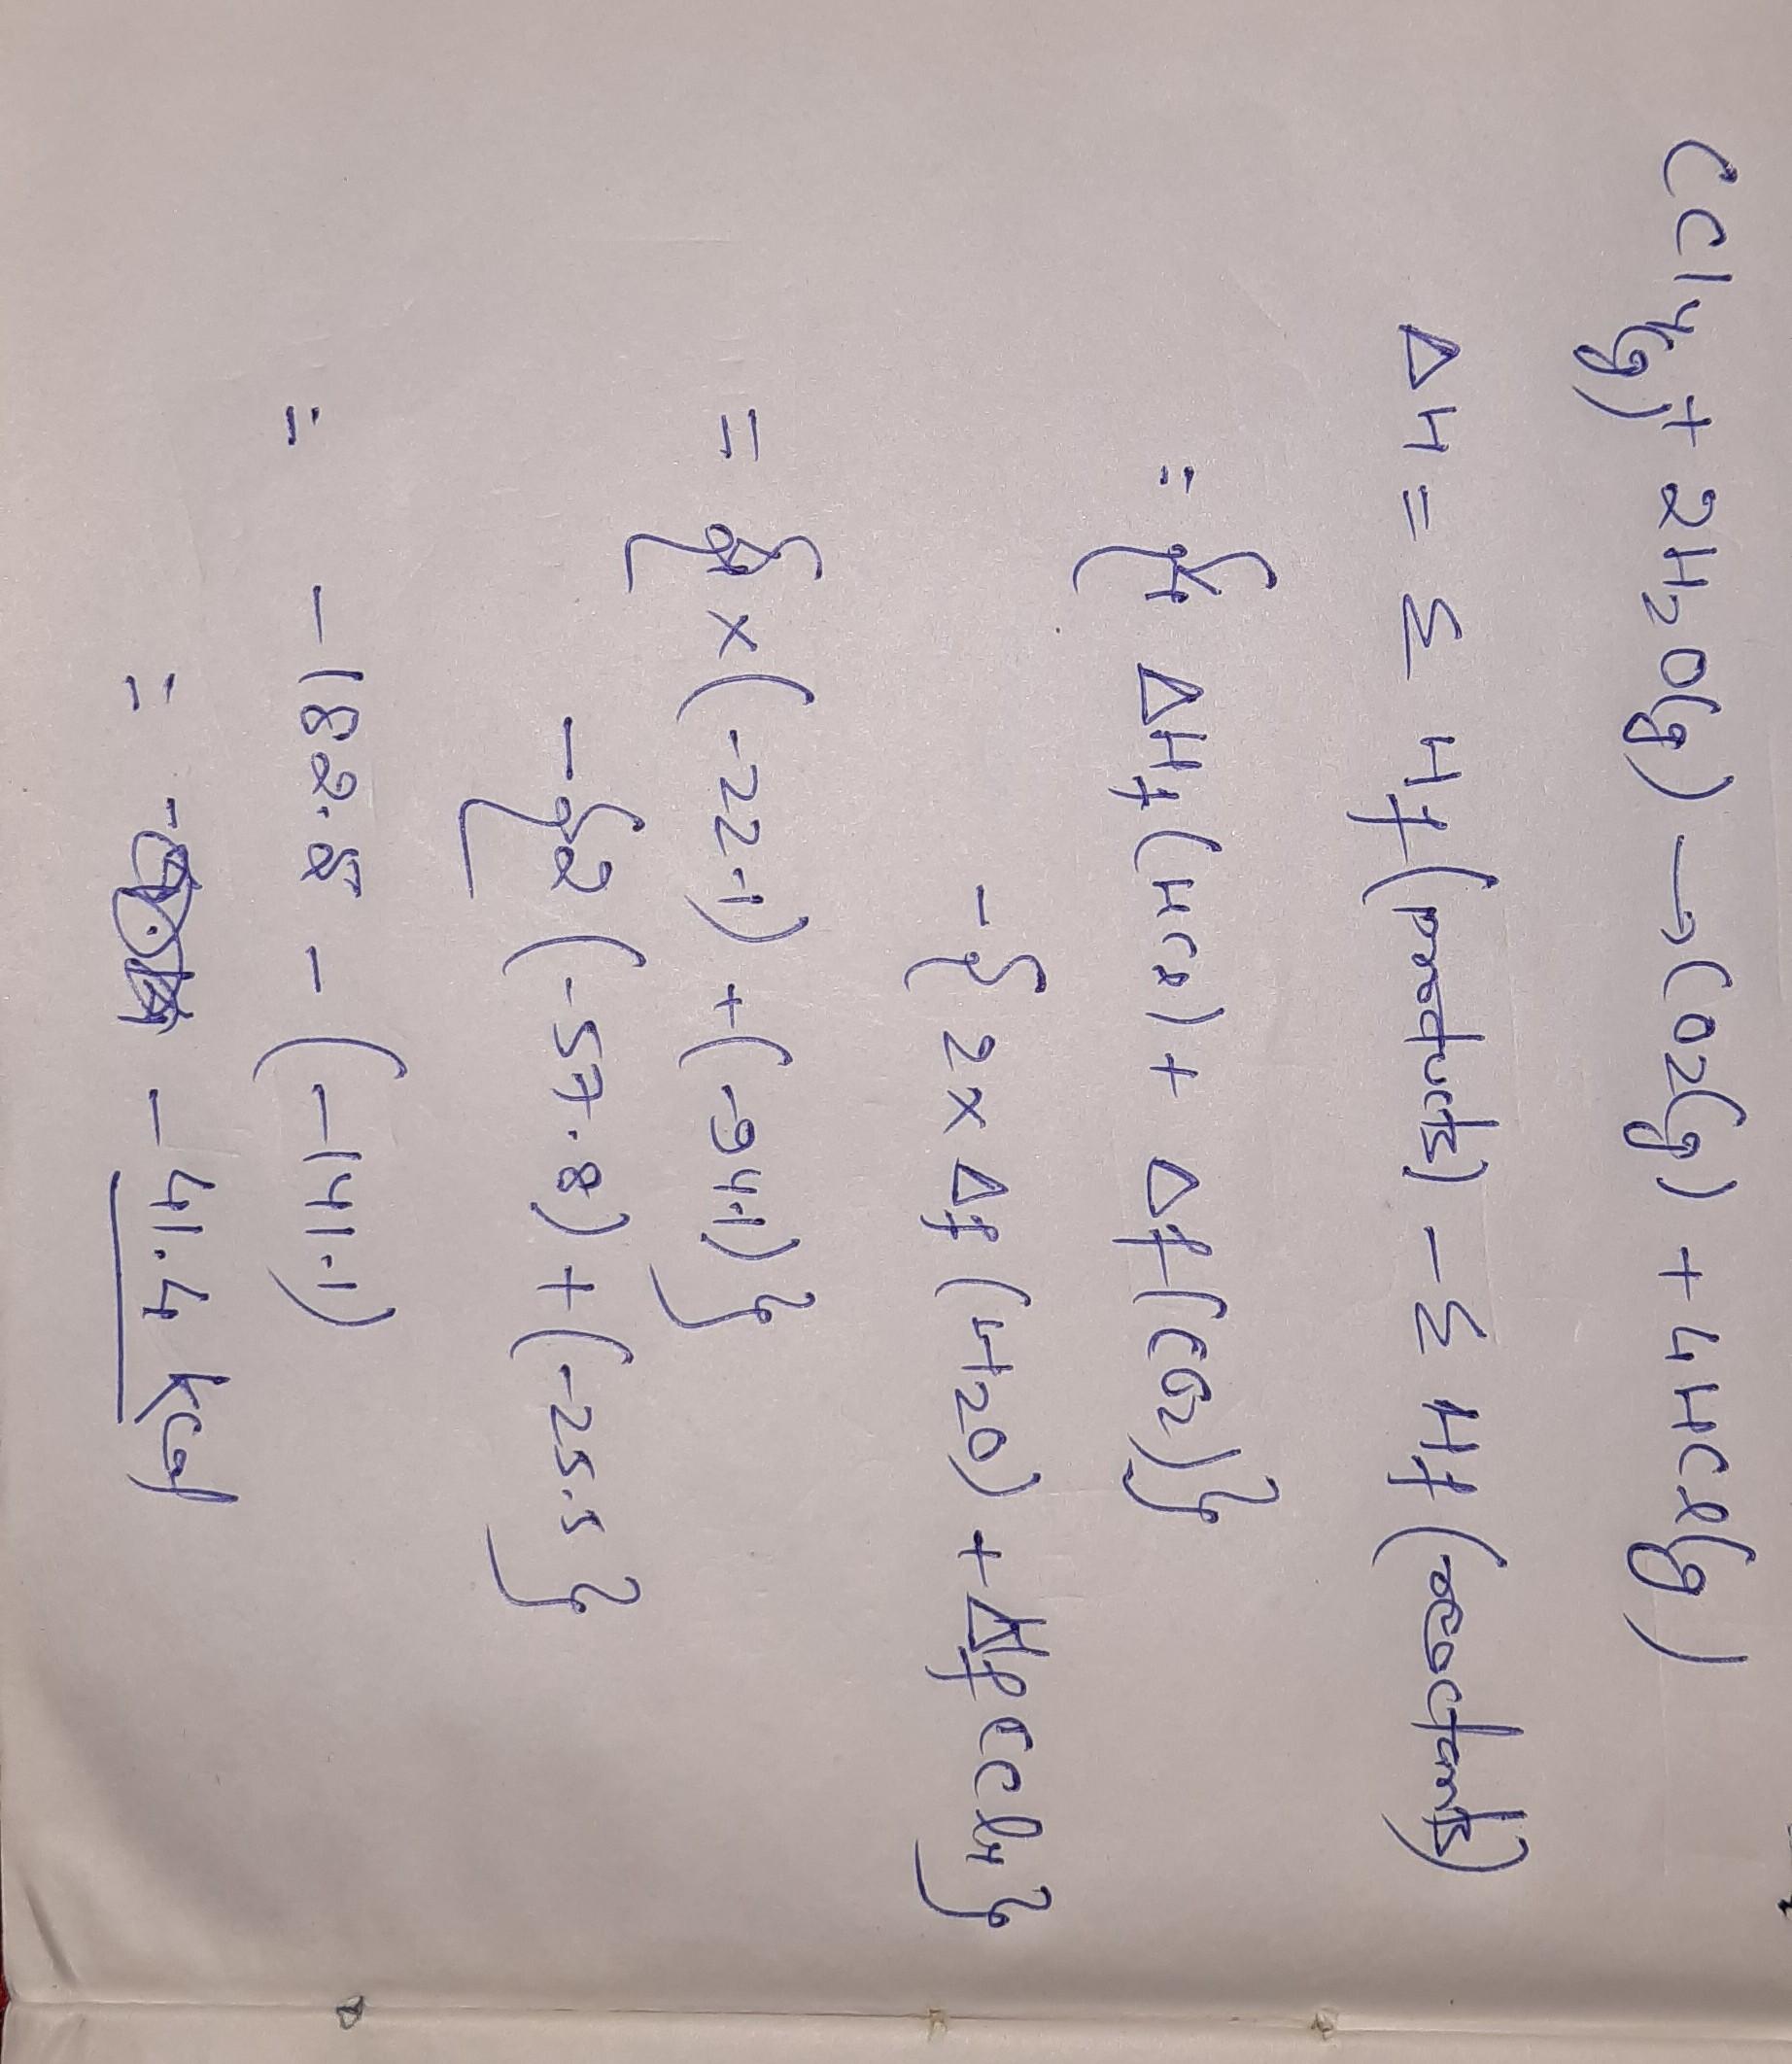 CCl4(g) + 2H2O(g) → CO2(g) + 4HCl(g)
ΔH = Σ Hf (products) - Σ Hf (reactants)
= {4 ΔHf (HCl) + Δf (CO2)}
- {2 x Δf (H2O) + ΔHf CCl4}
= {4 x (-22.1) + (-94.1)}
- {2 (-57.8) + (-25.5}
= -182.5 - (-141.1)
= - -41.4 kcal